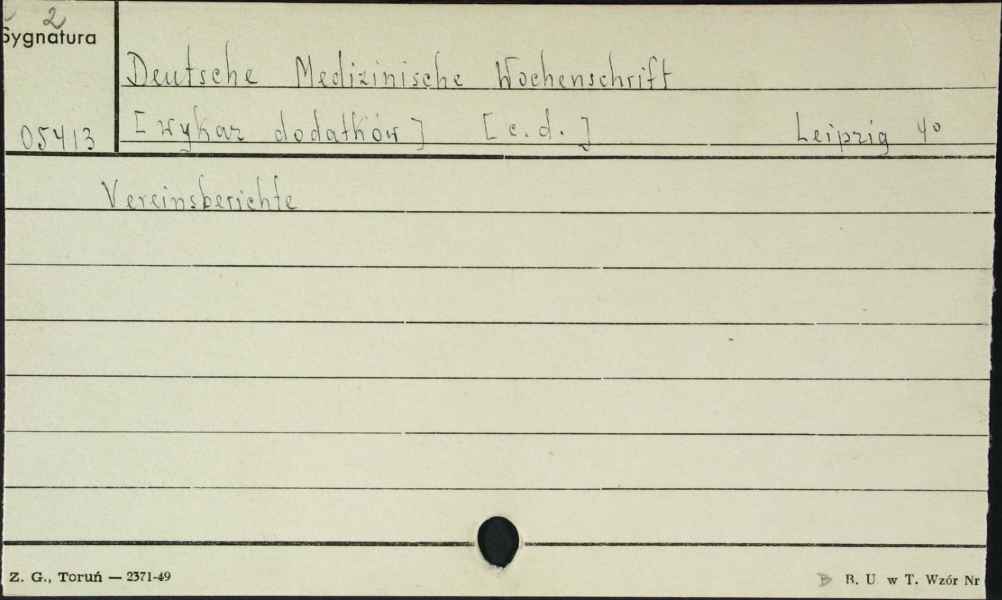 2
Sygnatura
Deutsche Medizinische Wochenschrift
05413 [wykaz dodatków] [c.d.] Leipzig 4°
Vereinsberichte
Z. G., Toruń — 2371-49
B. U. w T. Wzór Nr